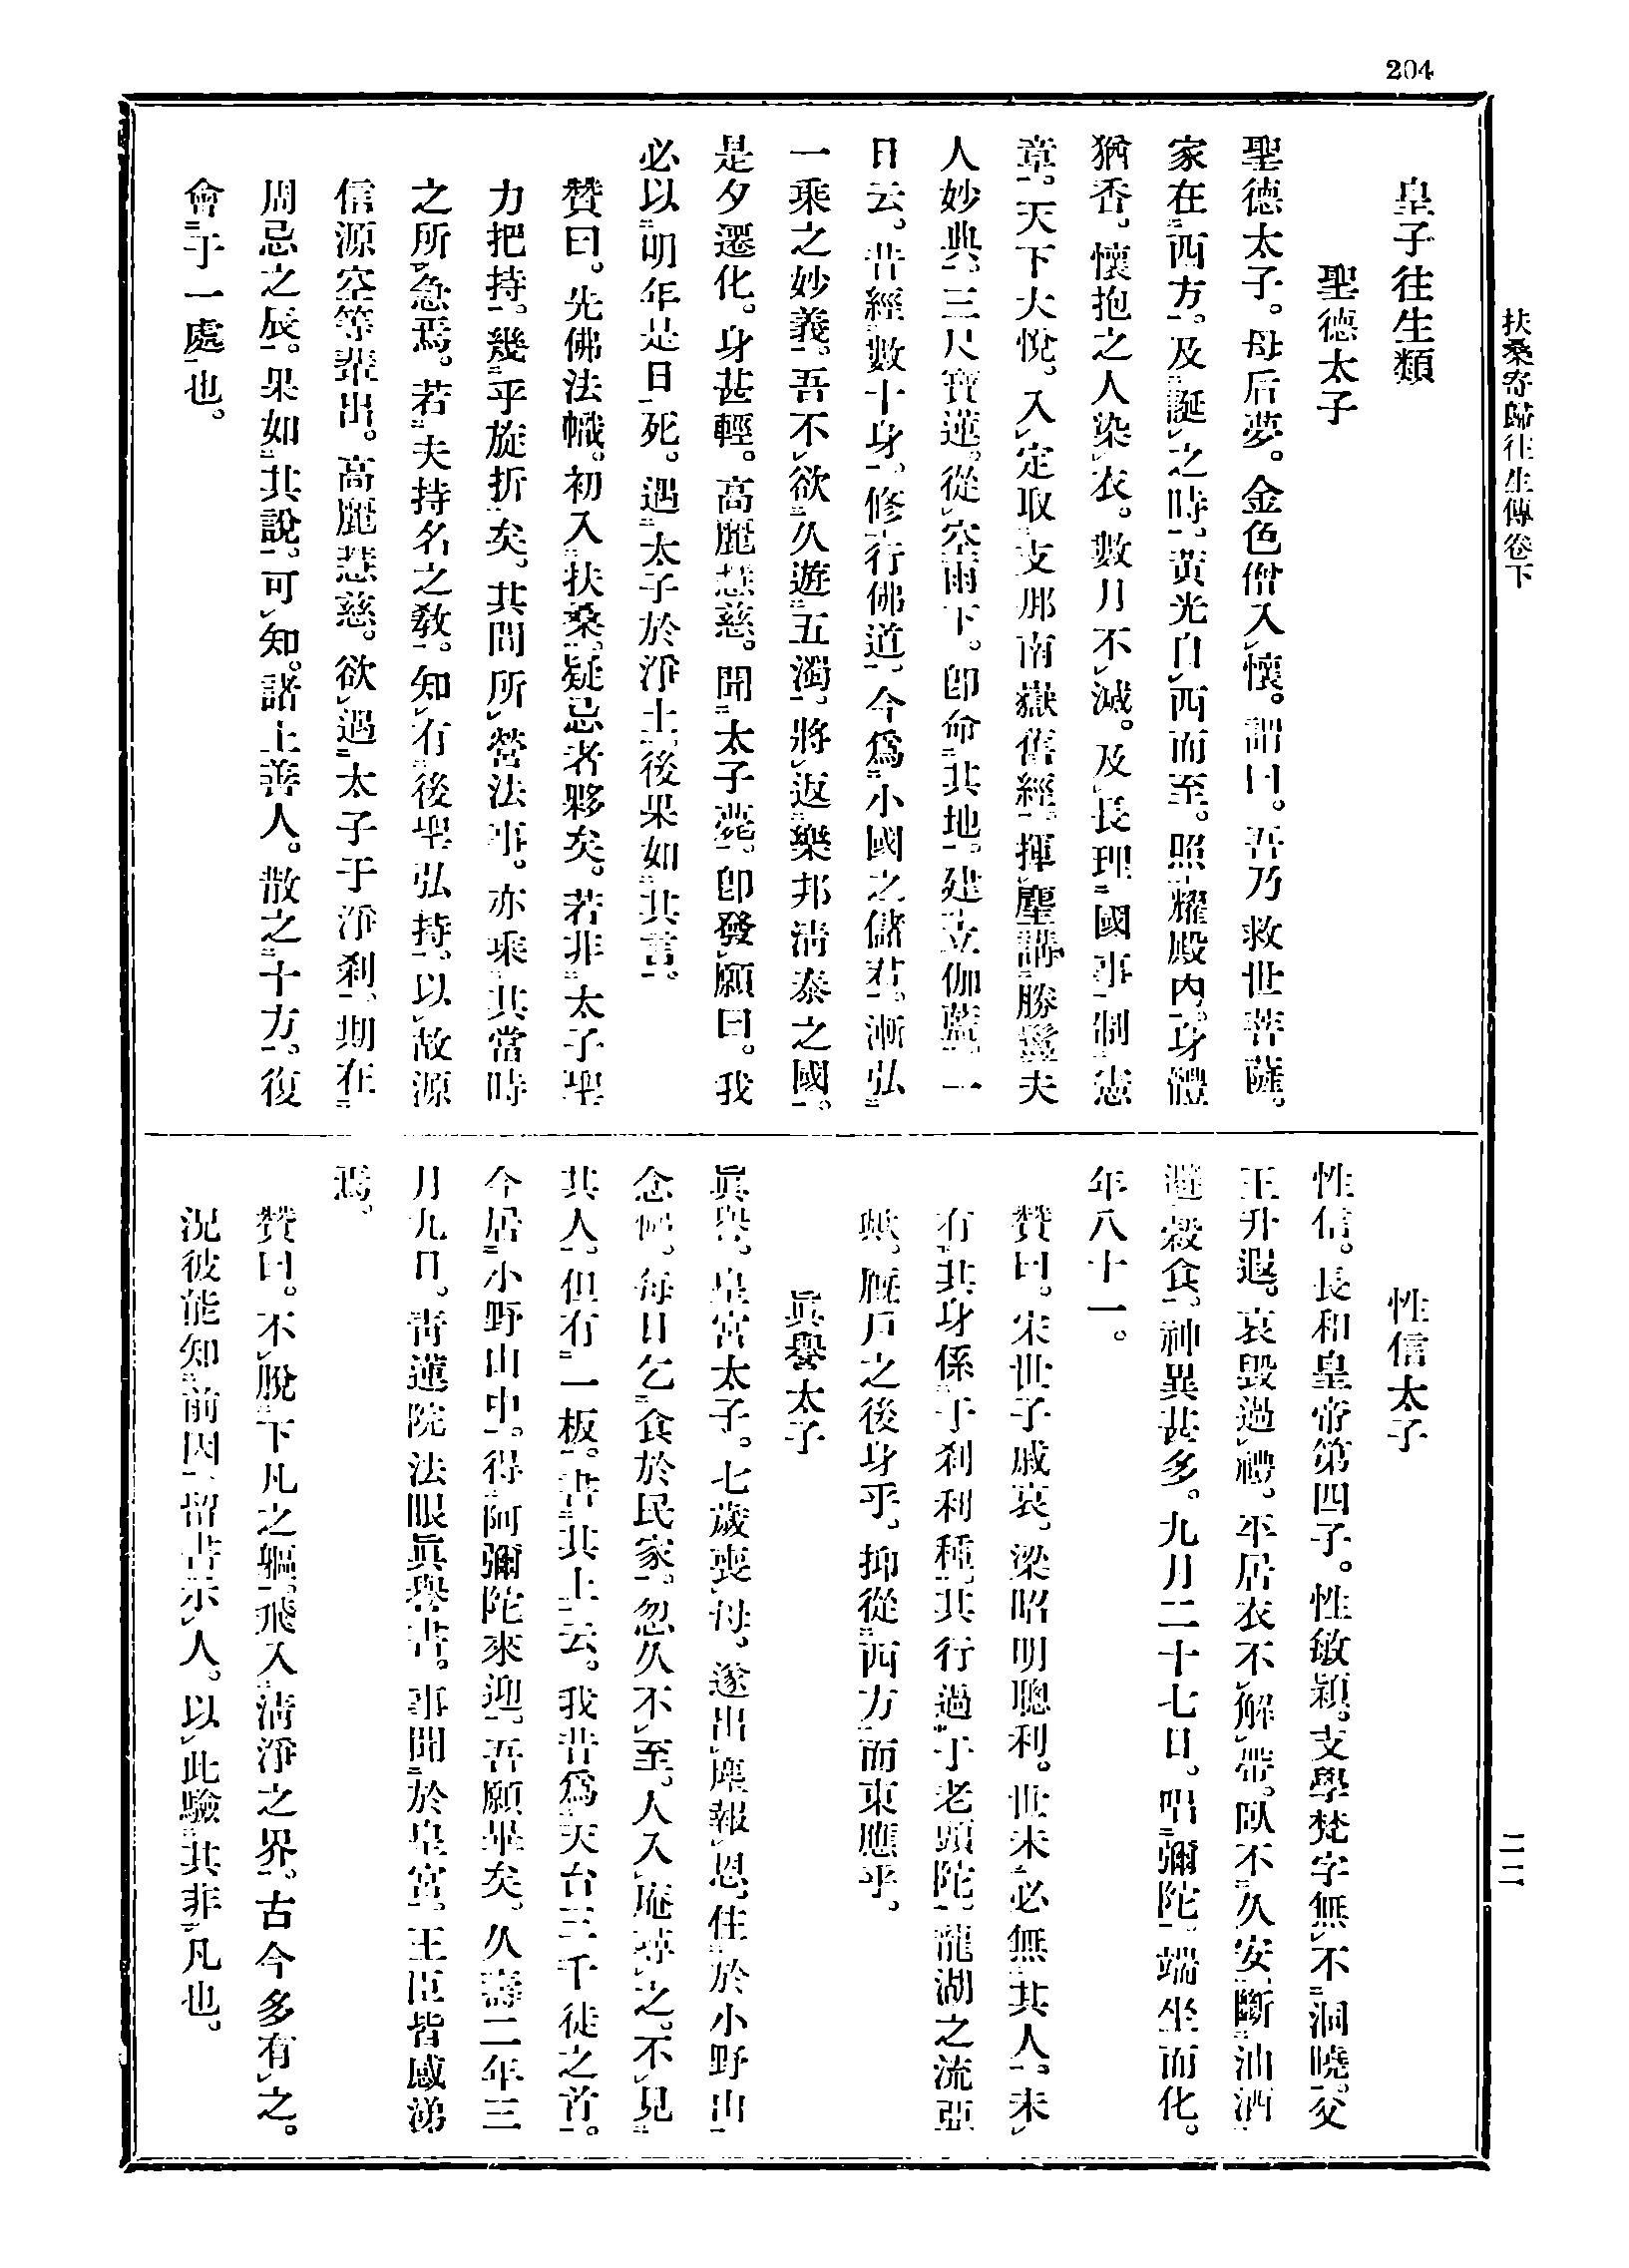 204
扶桑寄歸往生傳卷下
二二
皇子往生類
聖德太子
聖德太子。母后夢。金色僧入懷。謂曰。吾乃救世菩薩。
家在西方。及誕之時。黃光自西而至。照耀殿內。身體
猶香。懷抱之人染衣。數月不滅。及長理國事制憲
章。天下大悅。入定取支那南嶽舊經。揮麈講勝鬘夫
人妙典。三尺寶蓮。從空雨下。卽命其地。建立伽藍。一
日云。昔經數十身。修行佛道。今爲小國之儲君。漸弘
一乘之妙義。吾不欲久遊五濁。將返樂邦淸泰之國。
是夕遷化。身甚輕。高麗慧慈。聞太子薨。卽發願曰。我
必以明年是日死。遇太子於淨土。後果如其言。
贊曰。先佛法幟。初入扶桑。疑忌者夥矣。若非太子聖
力把持。幾乎旋折矣。其間所營法事。亦乘其當時
之所急焉。若夫持名之敎。知有後聖弘持。以故源
信源空等輩出。高麗慧慈。欲遇太子于淨刹。期在
周忌之辰。果如其說。可知。諸上善人。散之十方。復
會于一處也。
性信太子
性信。長和皇帝第四子。性敏穎。支學梵字無不洞曉。父
王升遐。哀毀過禮。平居衣不解帶。臥不久安。斷油酒
避穀食。神異甚多。九月二十七日。唱彌陀。端坐而化。
年八十一。
贊曰。宋世子戚哀。梁昭明聰利。世未必無其人。未
有其身係于刹利種。其行過于老頭陀。龍湖之流亞
歟。厩戶之後身乎。抑從西方而東應乎。
眞譽太子
眞譽。皇宮太子。七歲喪母。遂出塵報恩。住於小野山
念佛。每日乞食於民家。忽久不至。人入庵尋之。不見
其人。但有一板。書其上云。我昔爲天台三千徒之首。
今居小野山中。得阿彌陀來迎。吾願畢矣。久壽二年三
月九日。靑蓮院法眼眞譽書。事聞於皇宮。王臣皆感涕
焉。
贊曰。不脫下凡之軀。飛入淸淨之界。古今多有之。
況彼能知前因。留書示人。以此驗其非凡也。